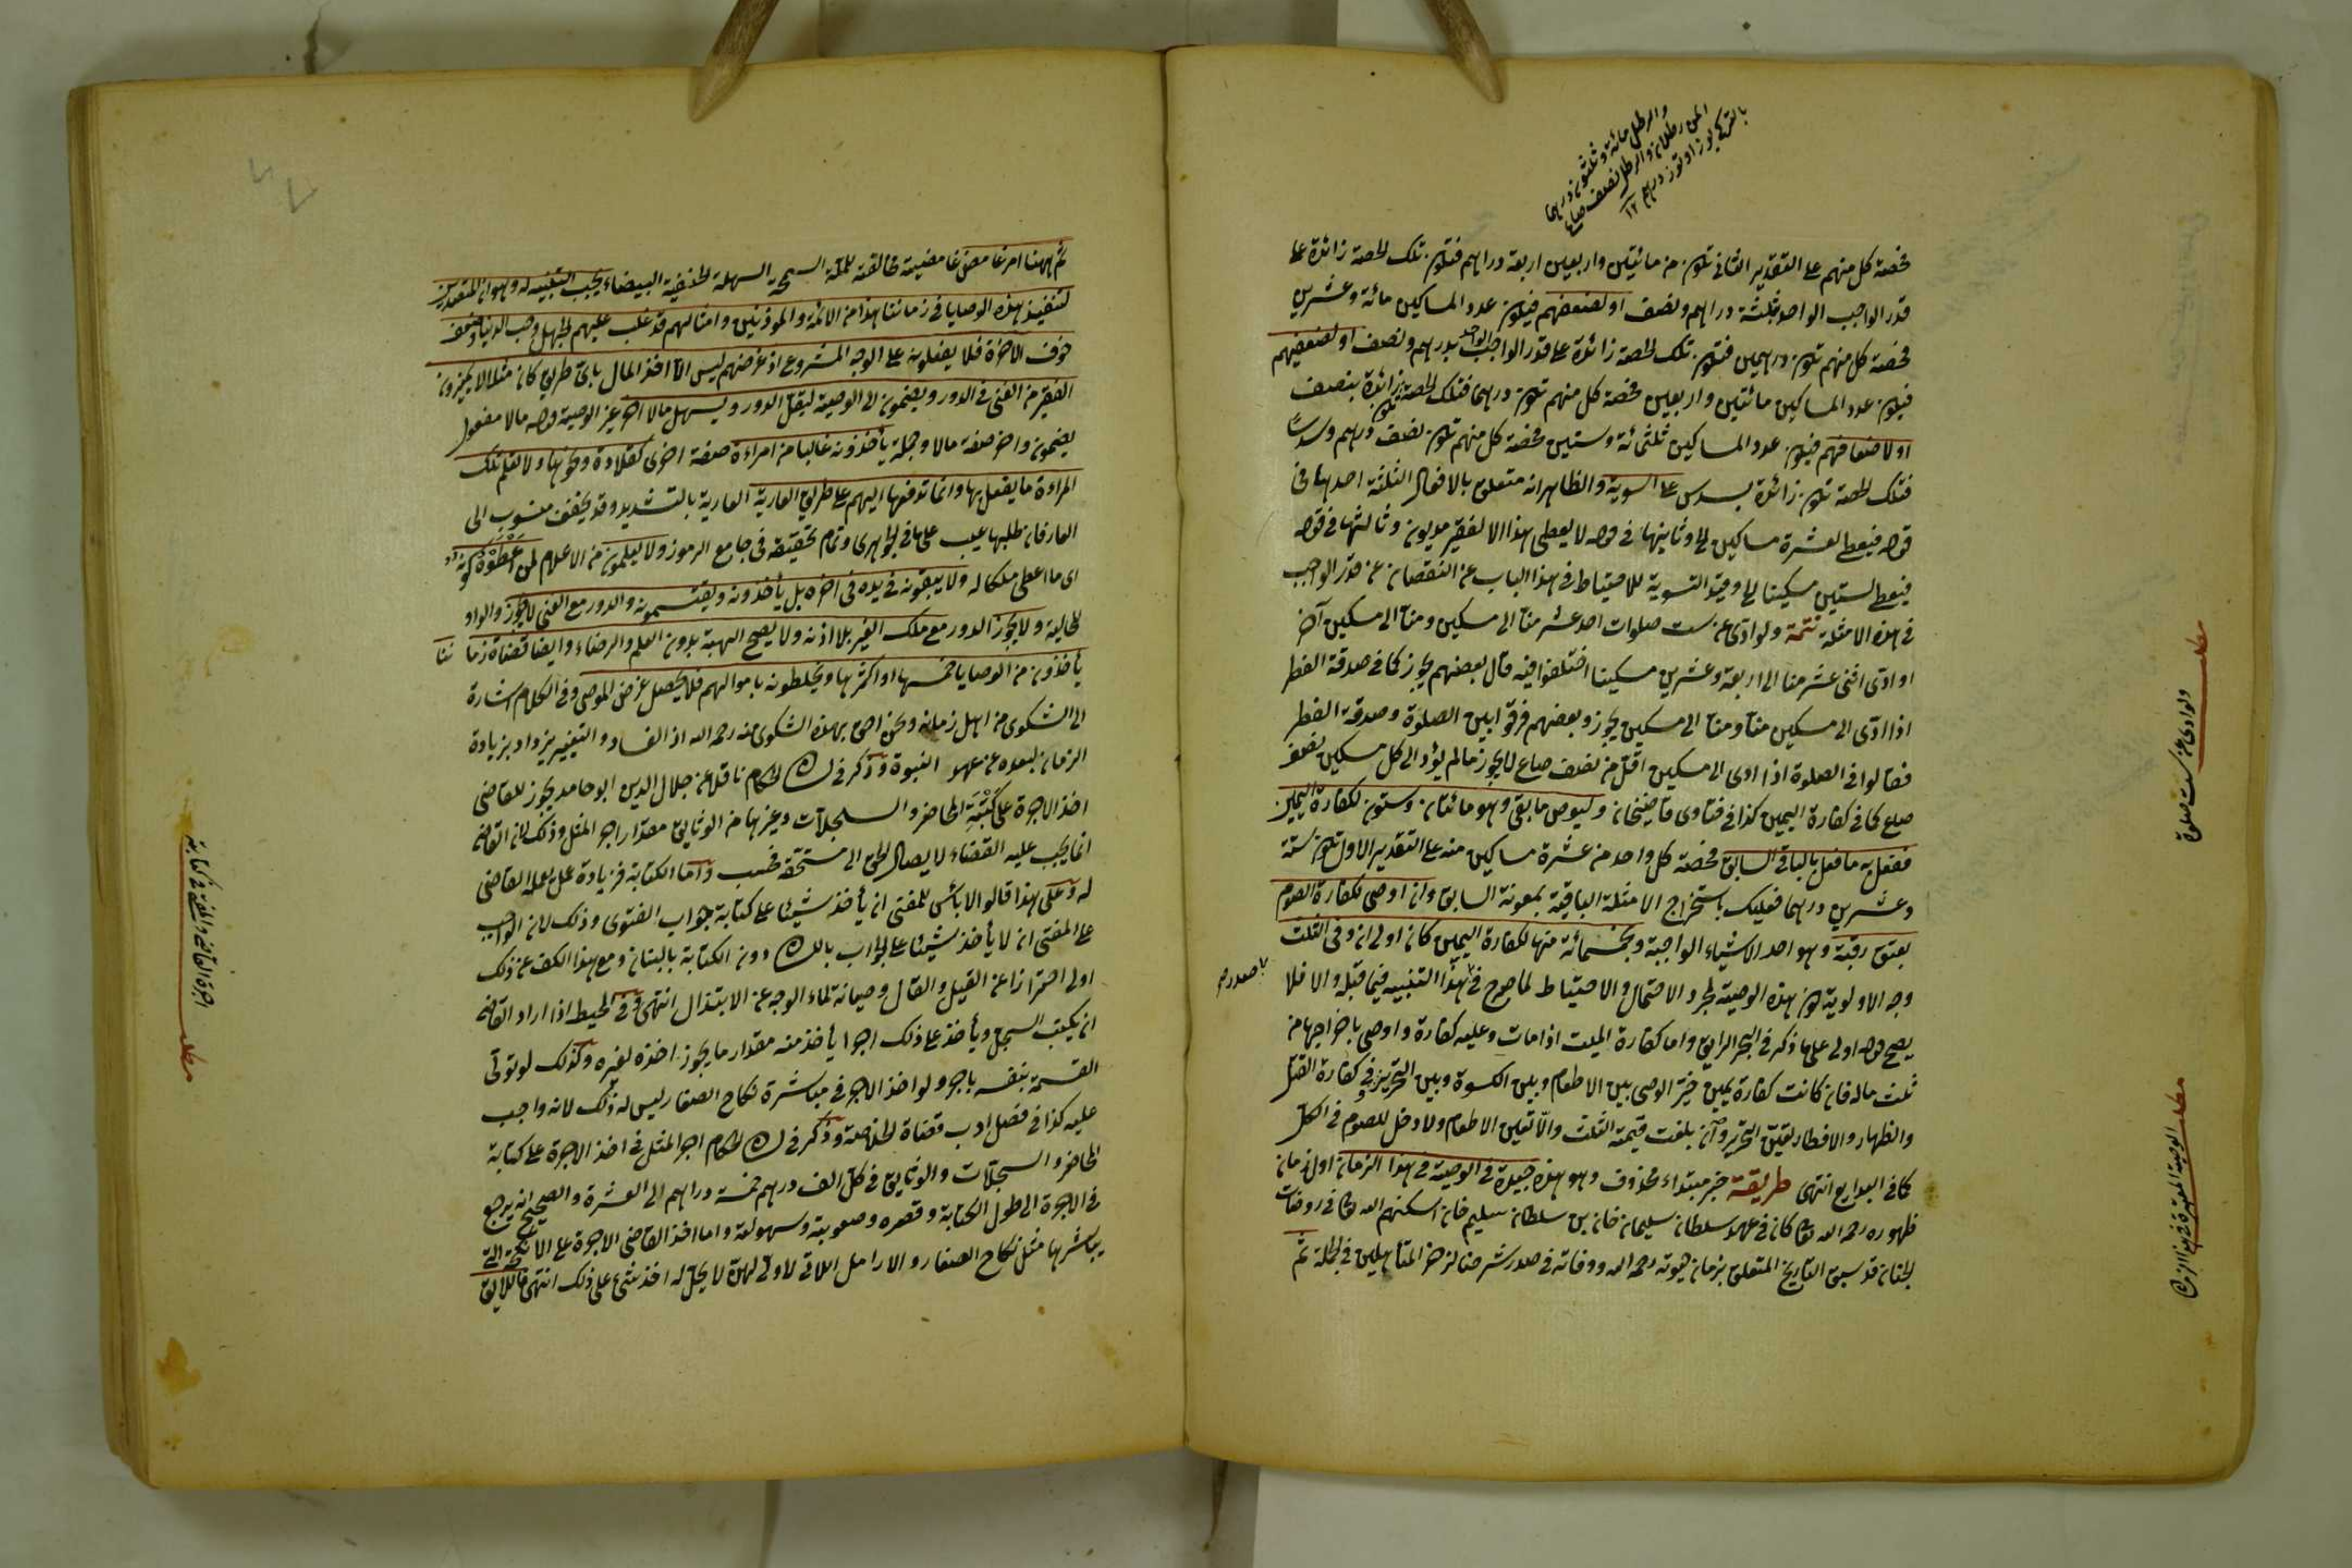 والرطل مائة وثلثون درهما
المن رطلان والرطل نصف من
بالتركي يوز اوتوز درهم ١٢
فحصة كل منهم على التقدير الثانى تكون من مائتين واربعين اربعة دراهم فتكون تلك الحصة زائدة على
قدر الواجب الواحد بثلثة دراهم ونصف او لضعفهم فيكون عدد المساكين مائة وعشرين
فحصة كل منهم تكون درهمين فتكون تلك الحصة زائدة على قدر الواجب الواحد بدرهم ونصف او لضعفهم
فيكون عدد المساكين مائتين واربعين فحصة كل منهم تكون درهما فتلك الحصة تكون زائدة بنصف
او لاضعافهم فيكون عدد المساكين ثلثمائة وستين فحصة كل منهم تكون نصف درهم وسدسا
فتلك الحصة تكون زائدة بسدس على السوية والظاهر انه متعلق بالافعال الثلثة احدها فى
قوله فيعطى لعشرة مساكين الخ وثانيها فى قوله لا يعطى هذا الا لفقير مديون وثالثها فى قوله
فيعطى لستين مسكينا الخ وقيد التسوية للاحتياط فى هذا الباب عن النقصان عن قدر الواجب
فى هذه الامثلة تتمة ولو ادى عن ست صلوات احد عشر منا الى مسكين ومنا الى مسكين آخر
او ادى اثنى عشر منا الى اربعة وعشرين مسكينا اختلفوا فيه قال بعضهم يجوز كما فى صدقة الفطر
اذا ادى الى مسكين منا ومنا الى مسكين يجوز وبعضهم فرقوا بين الصلوة وصدقة الفطر
فقالوا فى الصلوة اذا ادى الى مسكين اقل من نصف صاع لا يجوز ما لم يؤد الى كل مسكين نصف
صاع كما فى كفارة اليمين كذا فى فتاوى قاضيخان وليوص ما بقى وهو مائتان وستون لكفارة اليمين
ففعل به ما فعل بالباقى السابق فحصة كل واحد من عشرة مساكين منه على التقدير الاول تكون ستة
وعشرين درهما فعليك باستخراج الامثلة الباقية بمعونة السابق وان اوصى لكفارة الصوم
بعتق رقبة وهو احد الاشياء الواجبة وبخمسمائة منها لكفارة اليمين كان اولى ان وفى الثلث
وجه الاولوية كون هذه الوصية لمجرد الاحتمال والاحتياط لما صرح فى هذا التنبيه فيما قبله والا فلا
يصح قوله اولى على ما ذكر فى البحر الرايق واما كفارة الميت اذا مات وعليه كفارة واوصى باخراجها من
ثلث ماله فان كانت كفارة يمين خير الوصى بين الاطعام وبين الكسوة وبين التحرير وفى كفارة القتل
والظهار والافطار تعين التحرير وان بلغت قيمته الثلث والا تعين الاطعام ولا دخل للصوم فى الكل
كما فى البدايع انتهى طريقة خبر مبتداء محذوف وهو هذه جيدة فى الوصية فى هذا الزمان اول زمان
ظهوره رحمه الله تعالى كان فى عهد سلطان سليمان خان بن سلطان سليم خان اسكنهم الله تعالى فى روضات
الجنان قد سبق التاريخ المتعلق بزمان حيوته رحمه الله ووفاته فى صدر شرحنا لزهر المتأهلين فى الجملة ثم
مطلب
ولو ادى عن ست صلوة
مطلب الوصية المعتبرة فى هذا الزمان
ثم ههنا امر غامض غامضية مخالفته للملة السمحة السهلة الحنفية البيضاء يجب التنبيه له وهو ان المتعهدين
لتنفيذ هذه الوصايا فى زماننا هذا من الائمة والموذنين وامثالهم قد غلب عليهم الجهل وحب الدنيا وضعف
خوف الاخرة فلا يفعلون على الوجه المشروع اذ غرضهم ليس الا اخذ المال باى طريق كان مثلا لا يميزون
الفقير من الغنى فى الدور ويضمون الى الوصية ليقل الدور ويسهل مالا آخر غير الوصية قوله مالا مفعول
يضمون واخر صفة مالا وجملة يأخذونه غالبا من امراءة صفة اخرى كقلادة ونحوها ولا تعلم تلك
المراءة ما يفعل بها وانما تدفعها اليهم على طريق العارية العارية بالتشديد وقد يخفف منسوب الى
العار فان طلبها عيب على ما فى الجوهرى وتمام تحقيقه فى جامع الرموز ولا يعلمون من الاعلام لمن اعطوه كونه
اى ما اعطى ملكا له ولا يبقونه فى يده فى اخره بل يأخذونه ويقتسمونه والدور مع الغنى لا يجوز والواو
للحالية ولا يجوز الدور مع ملك الغير بلا اذنه ولا يصح الهبة بدون العلم والرضاء وايضا قضاة زماننا
يأخذون من الوصايا خمسها او اكثرها ويخلطونه باموالهم فلا يحصل غرض الموصى وفى الكلام اشارة
الى الشكوى من اهل زمانه ونحن احق بهذه الشكوى منه رحمه الله اذ الفساد والتغيير يزداد بزيادة
الزمان لبعده عن عهد النبوة وذكر فى لسان الحكام ناقلا عن جلال الدين ابو حامد يجوز للقاضى
اخذ الاجرة على كتبة المحاضر والسجلات وغيرها من الوثايق مقدار اجر المثل وذلك لان القاضى
انما يجب عليه القضاء لا يصال الحق الى مستحقه فحسب واما الكتابة فزيادة عمل يعمله القاضى
له وعلى هذا قالوا لا بأس للمفتى ان يأخذ شيئا على كتابة جواب الفتوى وذلك لان الواجب
على المفتى ان لا يأخذ شيئا على الجواب باللسان دون الكتابة بالبنان ومع هذا الكف عن ذلك
اولى احترازا عن القيل والقال وصيانة لماء الوجه عن الابتذال انتهى وفى المحيط اذا اراد القاضى
ان يكتب السجل ويأخذ على ذلك اجرا يأخذ منه مقدار ما يجوز اخذه لغيره وكذلك لو تولى
القسمة بنفسه باجر ولو اخذ الاجر فى مباشرة نكاح الصغار ليس له ذلك لانه واجب
عليه كذا فى فصل ادب قضاة الخلاصة وذكر فى لسان الحكام اجر المثل فى اخذ الاجرة على كتابة
المحاضر والسجلات والوثايق فى كل الف درهم خمسة دراهم الى العشرة والصحيح انه يرجع
فى الاجرة الى طول الكتابة وقصره وصعوبته وسهولته واما اخذ القاضى الاجرة على الانكحة التى
يباشرها مثل نكاح الصغار والارامل اللاتى لا ولى لهن لا يحل له اخذ شئ على ذلك انتهى فاللايق
اجرة القاضى والمفتى فى كتابة
مطلب